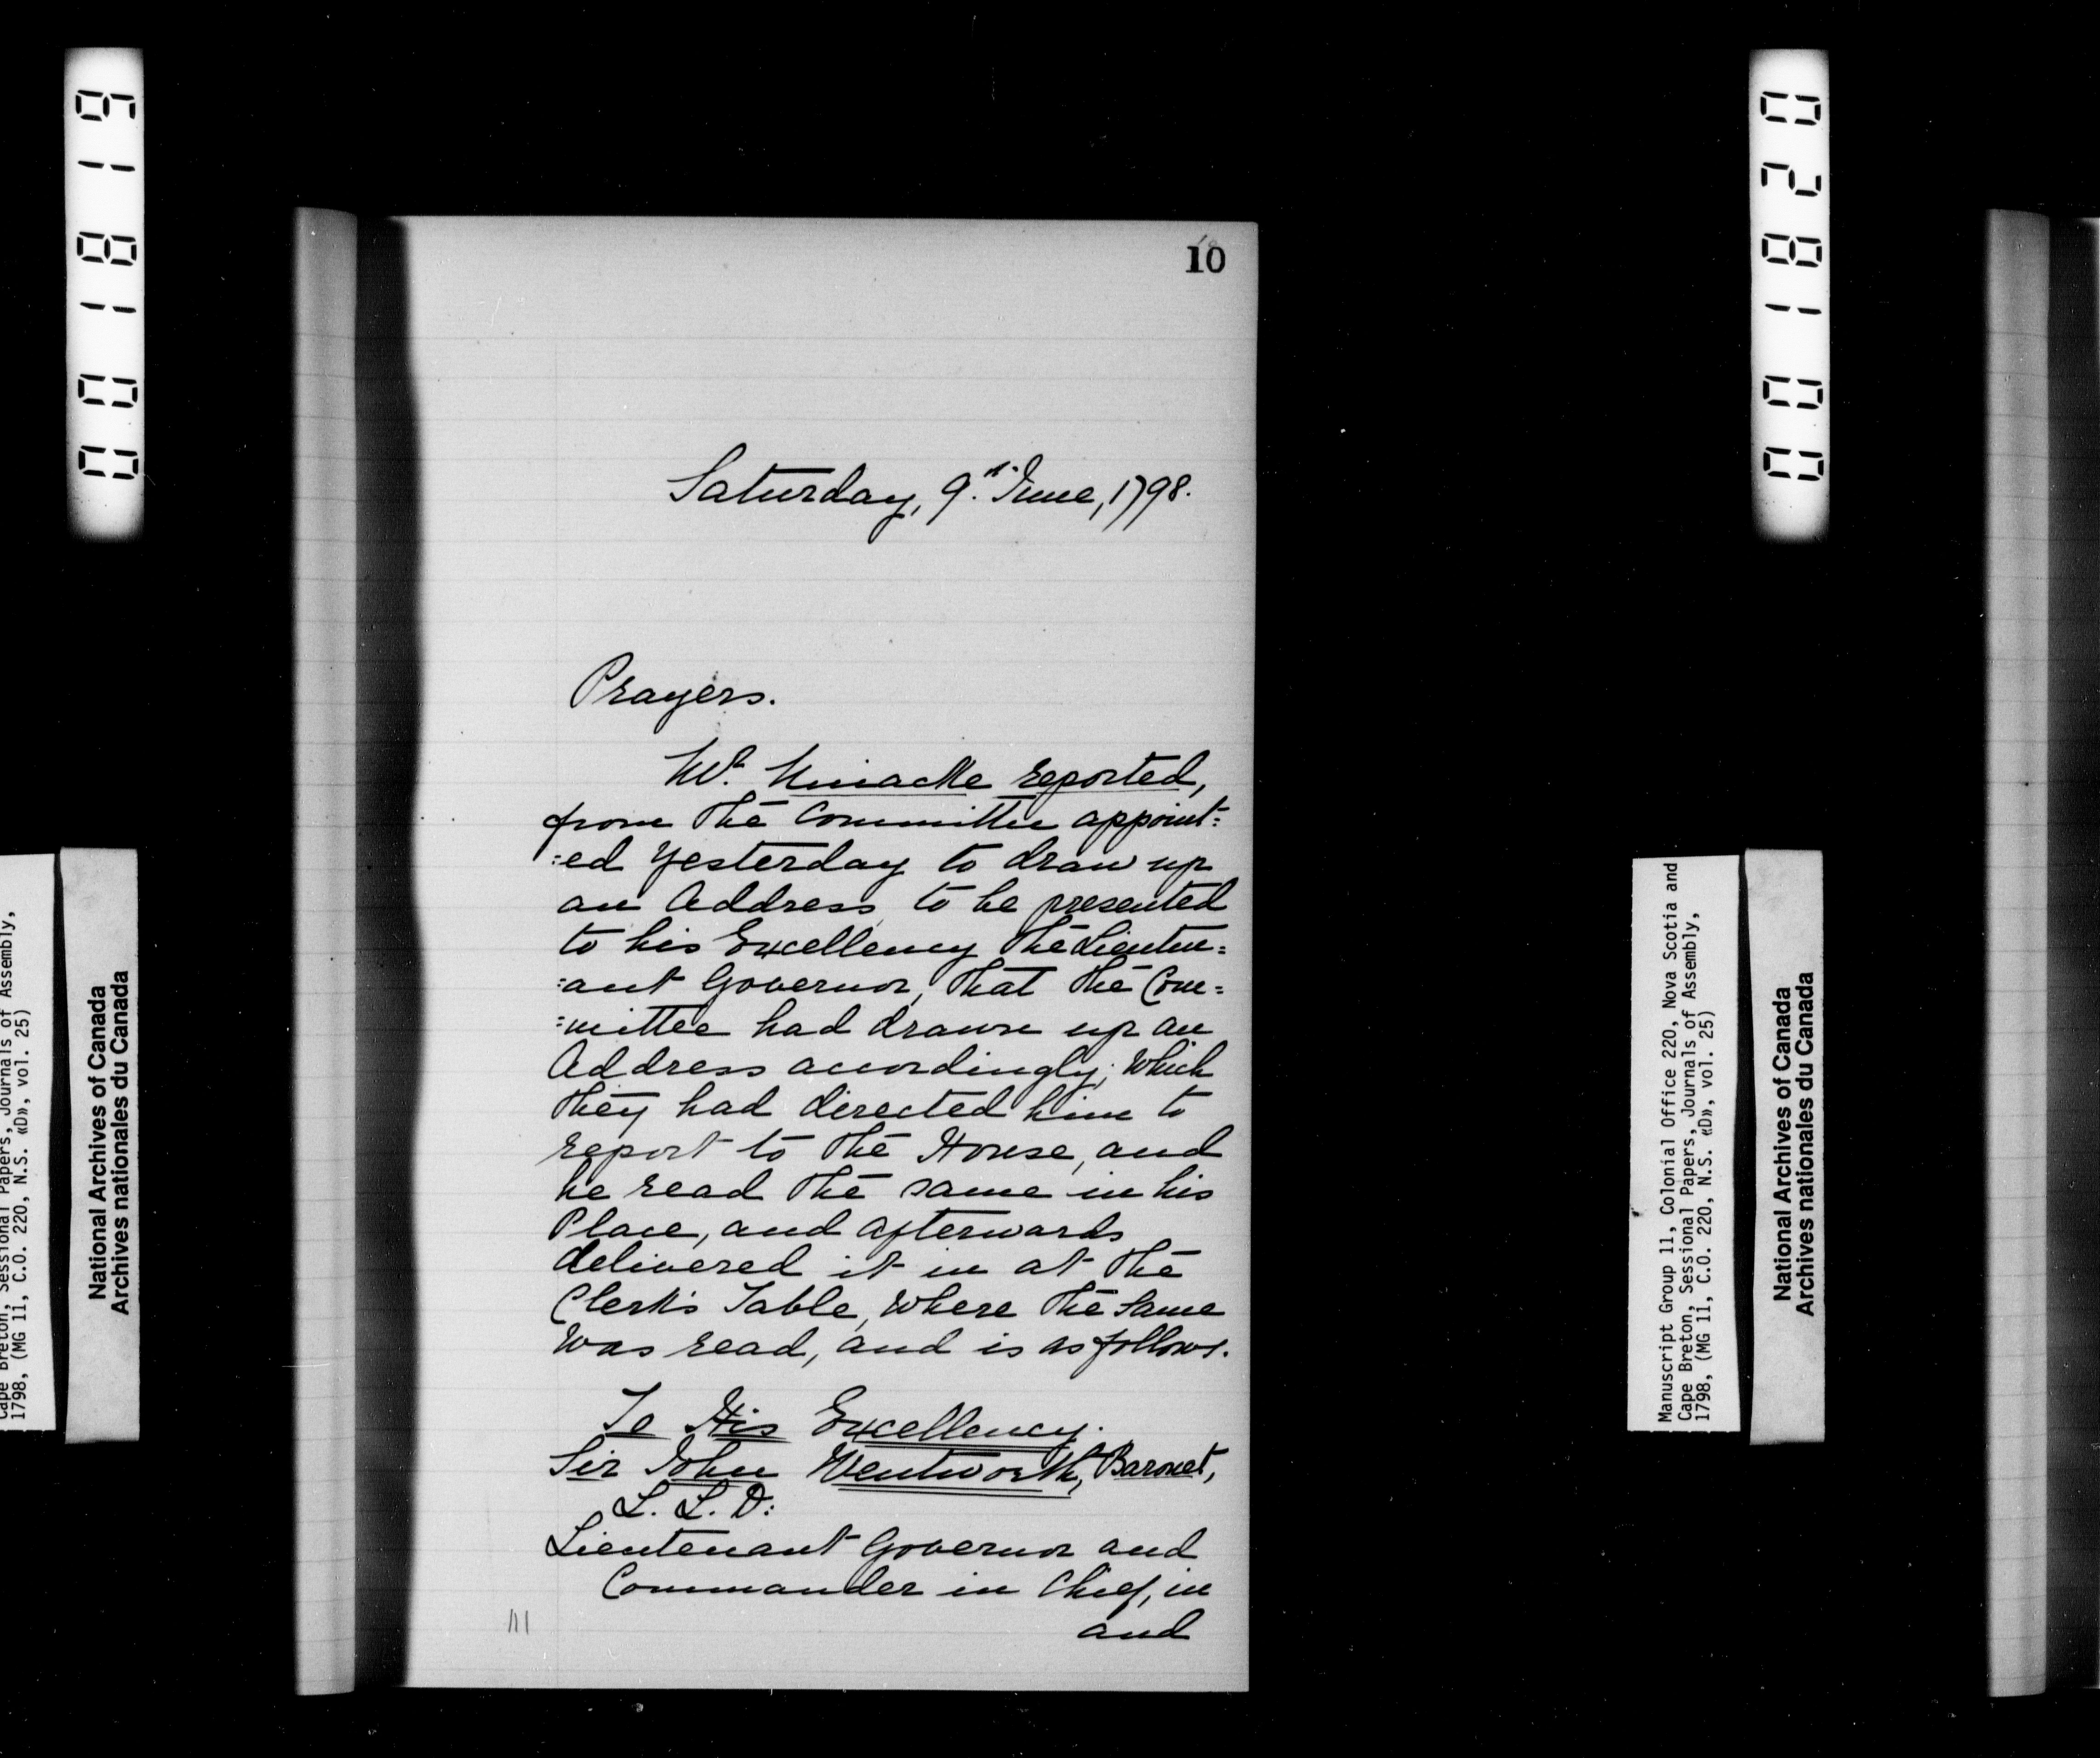 001819
001820
10
Saturday, 9.th June, 1798.
Prayers.
Mr. Uniacke reported,
from the Committee appoint=
=ed yesterday to draw up
an Address to be presented
to his Excellency the Lieuten=
=ant Governor, that the Com=
=mittee had drawn up an
Address accordingly; which
they had directed him to
report to the House, and
he read the same in his
Place, and afterwards
delivered it in at the
Clerk's Table, where the same
was read, and is as follows.
To His Excellency.
Sir John Wentworth, Baronet,
L. L. D:
Lieutenant Governor and
Commander in Chief, in
and
111
Cape Breton, Sessional Papers, Journals of Assembly,
1798, (MG 11, C.O. 220, N.S. «D», vol. 25)
National Archives of Canada
Archives nationales du Canada
Manuscript Group 11, Colonial Office 220, Nova Scotia and
Cape Breton, Sessional Papers, Journals of Assembly,
1798, (MG 11, C.O. 220, N.S. «D», vol. 25)
National Archives of Canada
Archives nationales du Canada